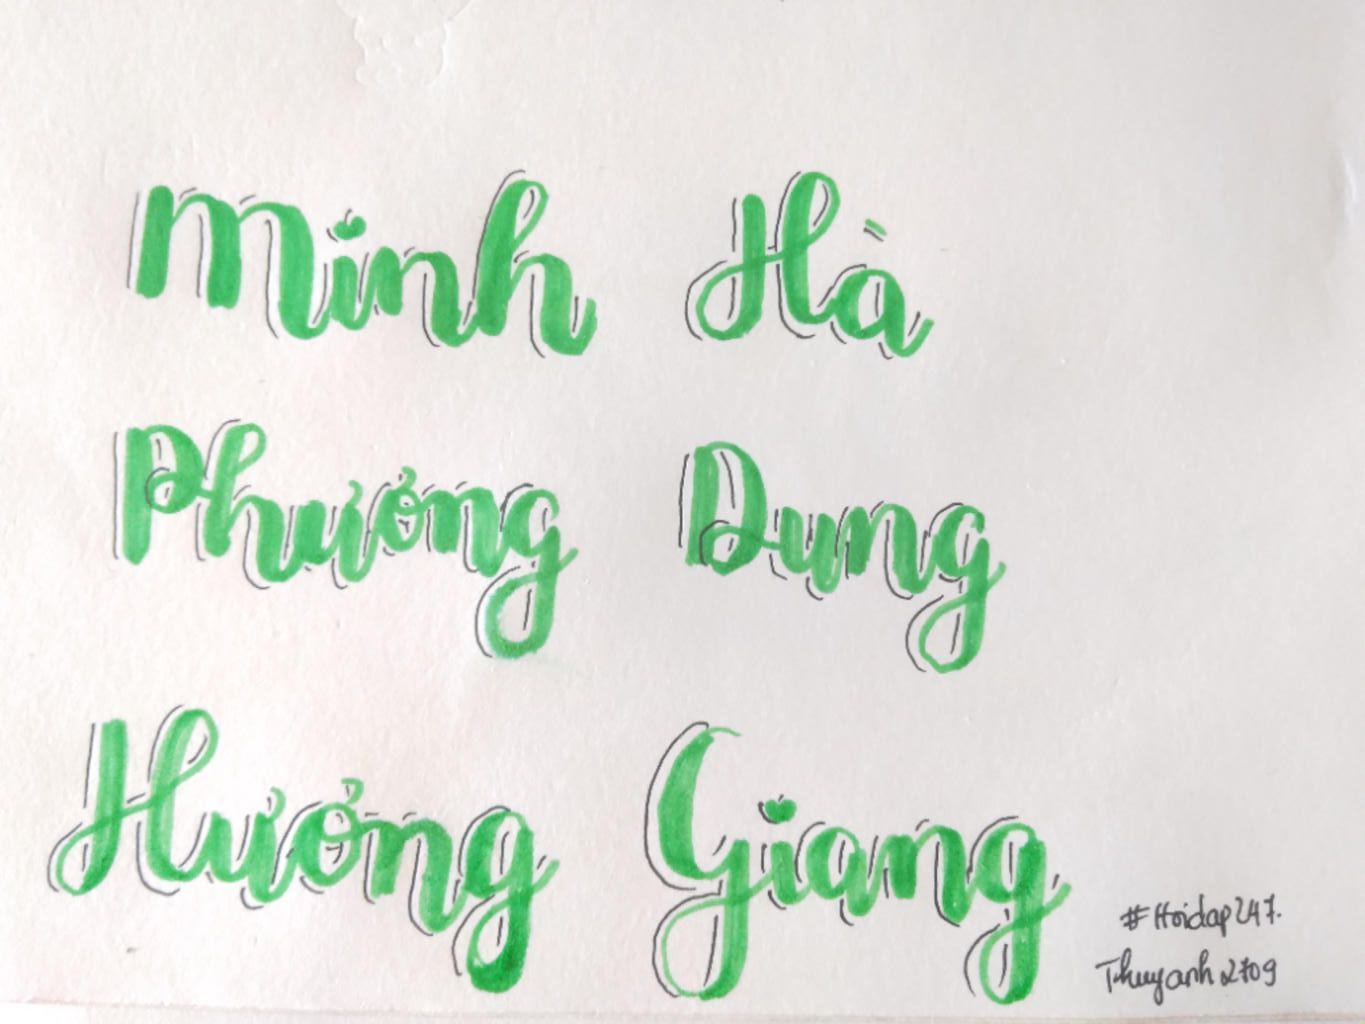 Minh Hà
Phương Dung
Hương Giang
#Hoidap247.
Thuyanh2709